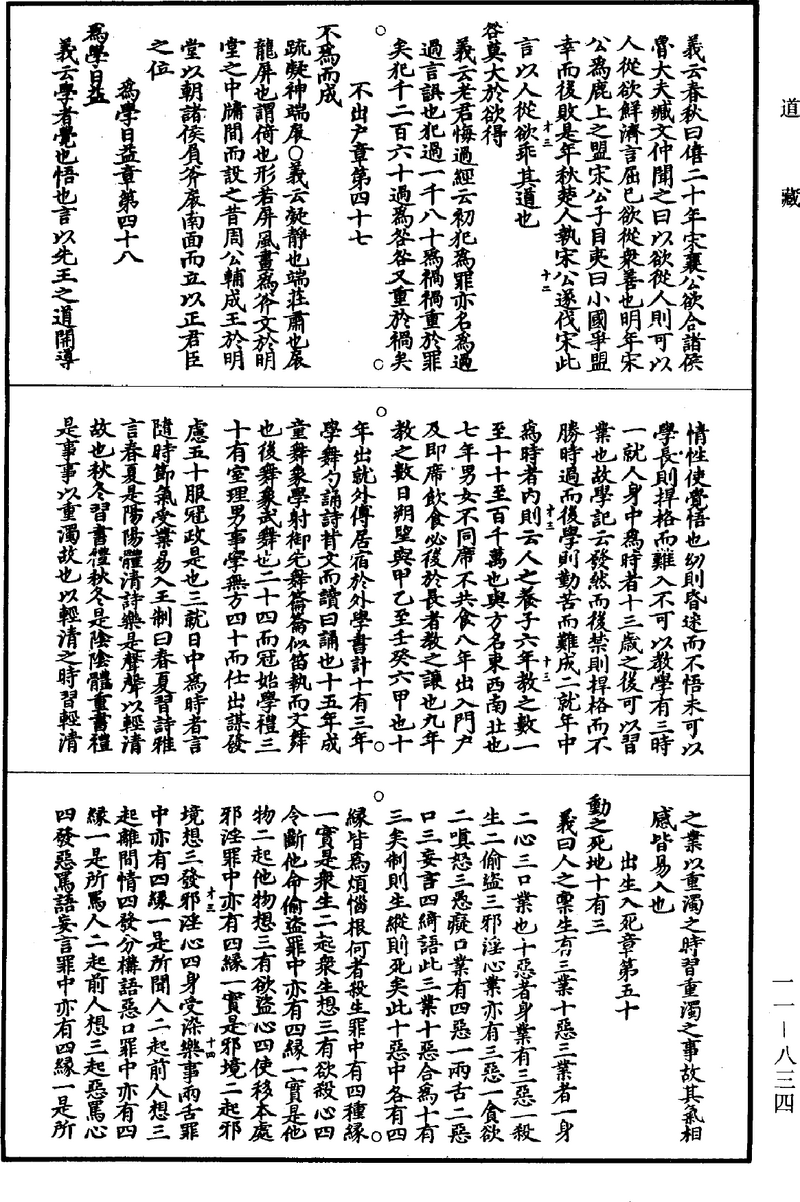 道藏
義云春秋曰僖二十年宋襄公欲合諸侯
魯大夫臧文仲聞之曰以欲從人則可以
人從欲鮮濟言屈己欲從衆善也明年宋
公爲鹿上之盟宋公子目夷曰小國爭盟
幸而後敗是年秋楚人執宋公遂伐宋此
言以人從欲乖其道也
咎莫大於欲得
義云老君悔過經云初犯爲罪亦名爲過
過言誤也犯過一千八十爲禍禍重於罪
矣犯千二百六十過爲咎咎又重於禍矣
不出户章第四十七
不爲而成
疏凝神端扆○義云凝靜也端莊肅也扆
龍屏也謂倚也形若屏風畫爲斧文於明
堂之中牖間而設之昔周公輔成王於明
堂以朝諸侯負斧扆南面而立以正君臣
之位
爲學日益章第四十八
爲學日益
義云學者覺也悟也言以先王之道開導
情性使覺悟也幼則昏迷而不悟未可以
學長則捍格而難入不可以教學有三時
一就人身中爲時者十三歲之後可以習
業也故學記云發然而後禁則捍格而不
勝時過而後學則勤苦而難成二就年中
爲時者内則云人之養子六年教之數一
至十十至百千萬也與方名東西南北也
七年男女不同席不共食八年出入門户
及即席飲食必後於長者教之讓也九年
教之數日朔望與甲乙至壬癸六甲也十
年出就外傅居宿於外學書計十有三年
學舞勺誦詩背文而讀曰誦也十五年成
童舞象學射御先舞籥籥似笛執而文舞
也後舞象武舞也二十四而冠始學禮三
十有室理男事學無方四十而仕出謀發
慮五十服冠政是也三就日中爲時者言
隨時節氣受業易入王制曰春夏習詩雅
言春夏是陽陽體清詩樂是聲聲以輕清
故也秋冬習書禮秋冬是陰陰體重書禮
是事事以重濁故也以輕清之時習輕清
之業以重濁之時習重濁之事故其氣相
感皆易入也
出生入死章第五十
動之死地十有三
義曰人之稟生有三業十惡三業者一身
二心三口業也十惡者身業有三惡一殺
生二偷盜三邪淫心業亦有三惡一貪欲
二嗔怒三愚癡口業有四惡一兩舌二惡
口三妄言四綺語此三業十惡合爲十有
三矣制則生縱則死矣此十惡中各有四
緣皆爲煩惱根何者殺生罪中有四種緣
一實是衆生二起衆生想三有欲殺心四
令斷他命偷盜罪中亦有四緣一實是他
物二起他物想三有欲盜心四使移本處
邪淫罪中亦有四緣一實是邪境二起邪
境想三發邪淫心四身受滛樂事兩舌罪
中亦有四緣一是所聞人二起前人想三
起離間情四發分構語惡口罪中亦有四
緣一是所罵人二起前人想三起惡罵心
四發惡罵語妄言罪中亦有四緣一是所
一一—八三四